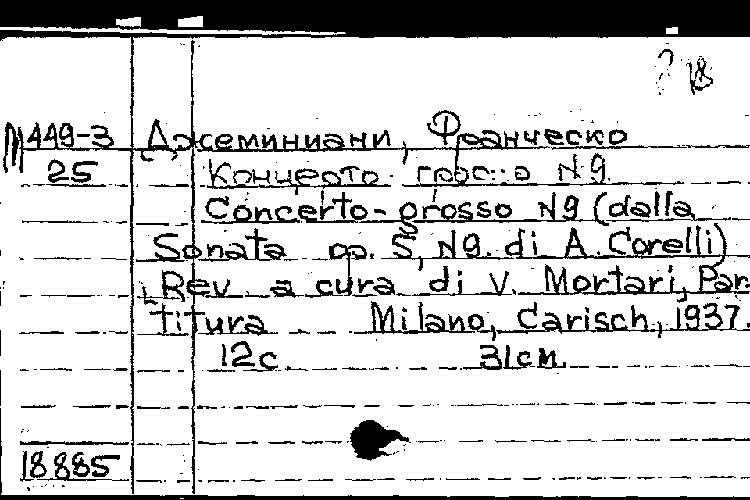 18
М449-3 Джеминиани, Франческо
25 Концерто гроссо N9
Concerto-grosso N9 (dalla
Sonata op. 5, N9. di A. Corelli)
Rev. a cura di V. Mortari, Par-
titura Milano, Carisch, 1937.
12с. 31см.
18885